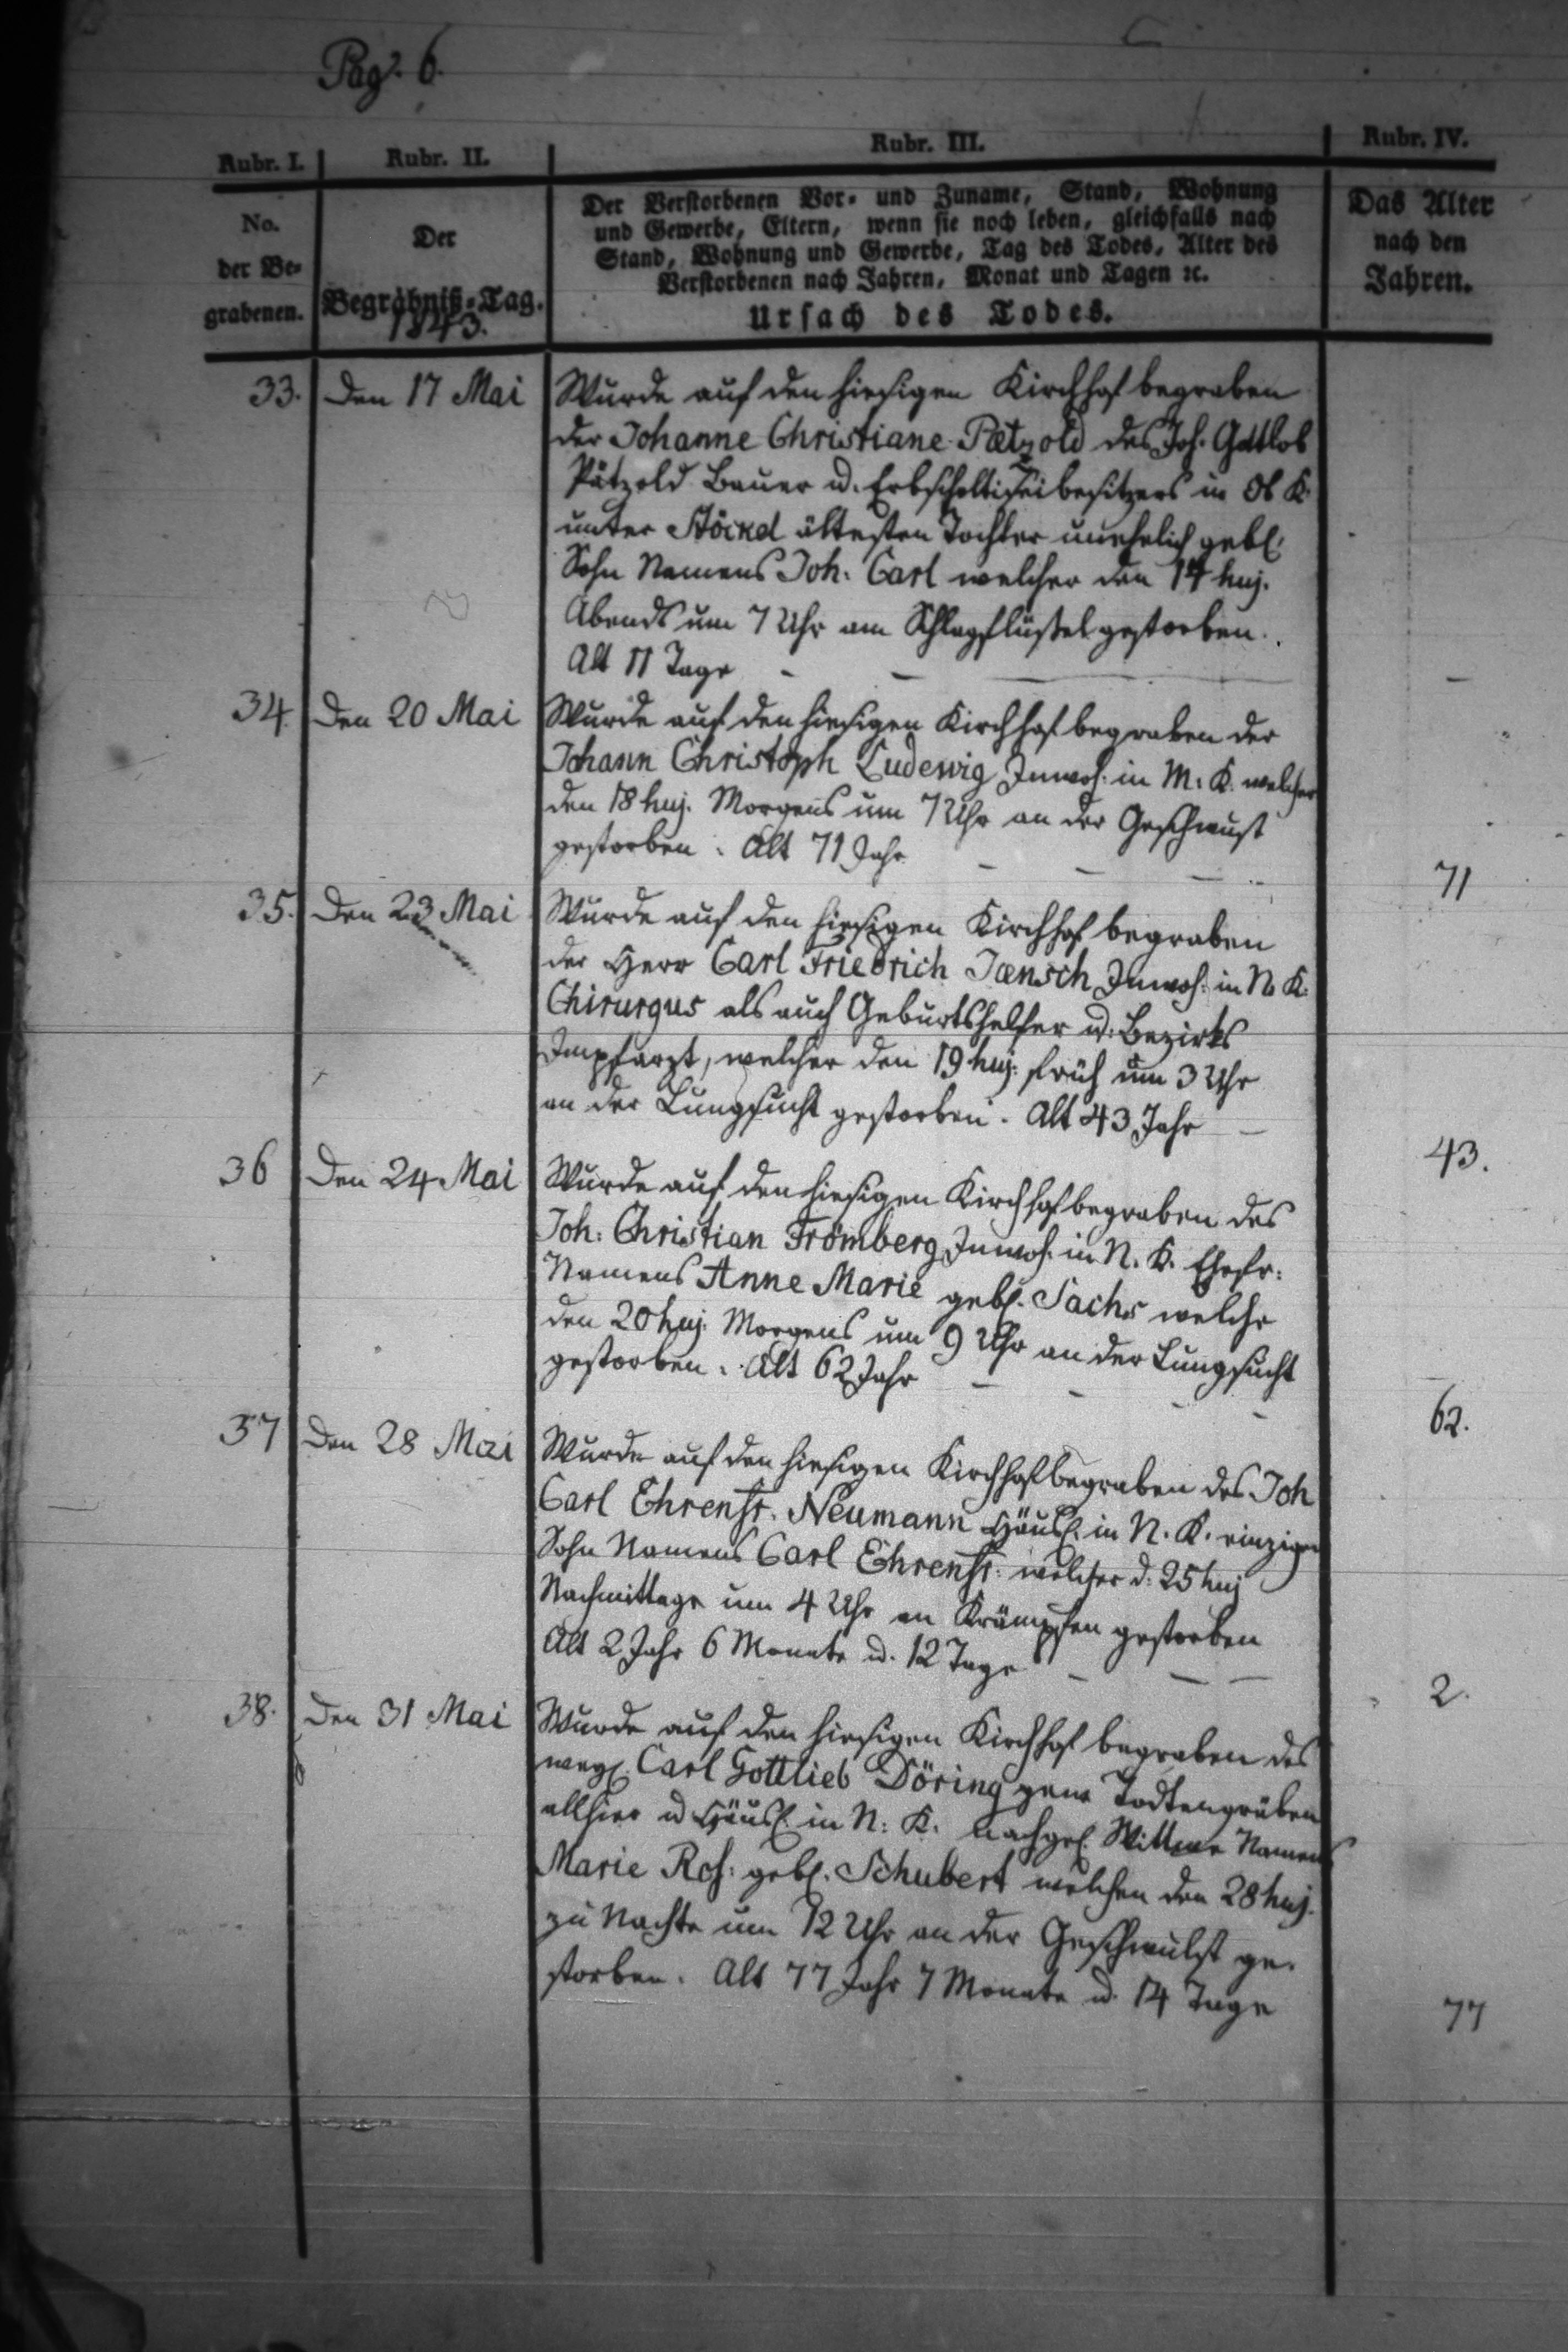 Pag. 6.
Rubr. I. Rubr. II. Rubr. III. Rubr. IV.
No.
der Be-
grabenen.
Der
Begräbniß-Tag.
1843.
Der Verstorbenen Vor- und Zuname, Stand, Wohnung
und Gewerbe, Eltern, wenn sie noch leben, gleichfalls nach
Stand, Wohnung und Gewerbe, Tag des Todes, Alter des
Verstorbenen nach Jahren, Monat und Tagen ꝛc.
Ursach des Todes.
Das Alter
nach den
Jahren.
33. Den 17 Mai Wurde auf den hiesigen Kirchhof begraben
der Johanne Christiane Pætzold des Joh. Gottlob
Pätzold Bauer u. Erbscholtiseibesitzers in Ob K.
unter Stöckel ältesten Tochter unehelich gebl.
Sohn Namens Joh: Carl welcher den 14 huj.
Abends um 7 Uhr am Schlagflüßel gestorben.
Alt 11 Tage - - -
34. Den 20 Mai Wurde auf den hiesigen Kirchhof begraben der
Johann Christoph Ludewig Inwoh. in M. K. welcher
den 18 huj. Morgens um 7 Uhr an der Geschwust
gestorben. Alt 71 Jahr - - - 71
35. Den 23 Mai Wurde auf den hiesigen Kirchhof begraben
der Herr Carl Friedrich Jænsch Inwoh. in N. K.
Chirurgus als auch Geburtshelfer u. Bezirks
Impfarzt, welcher den 19 huj. früh um 3 Uhr
an der Lungsucht gestorben. Alt 43 Jahr - 43.
36 Den 24 Mai Wurde auf den hiesigen Kirchhof begraben des
Joh: Christian Frömberg Inwoh. in N. K. Ehefr:
Namens Anne Marie gebl. Sachs welche
den 20 huj. Morgens um 9 Uhr an der Lungsucht
gestorben. Alt 62 Jahr - - - - 62.
37 Den 28 Mai Wurde auf den hiesigen Kirchhof begraben des Joh
Carl Ehrenfr. Neumann Häusl. in N. K. einziger
Sohn Namens Carl Ehrenfr: welcher d: 25 huj
Nachmittage um 4 Uhr an Krämpfen gestorben
Alt 2 Jahr 6 Monate u. 12 Tage - - - 2.
38. Den 31 Mai Wurde auf den hiesigen Kirchhof begraben des
weyl. Carl Gottlieb Döring gew. Todtengräber
allhier u Häusl. in N: K. nachgel. Wittwe Namens
Marie Ros: gebl. Schubert welchen den 28 huj.
zu Nachte um 12 Uhr an der Geschwulst ge-
storben. Alt 77 Jahr 7 Monate u. 14 Tage 77